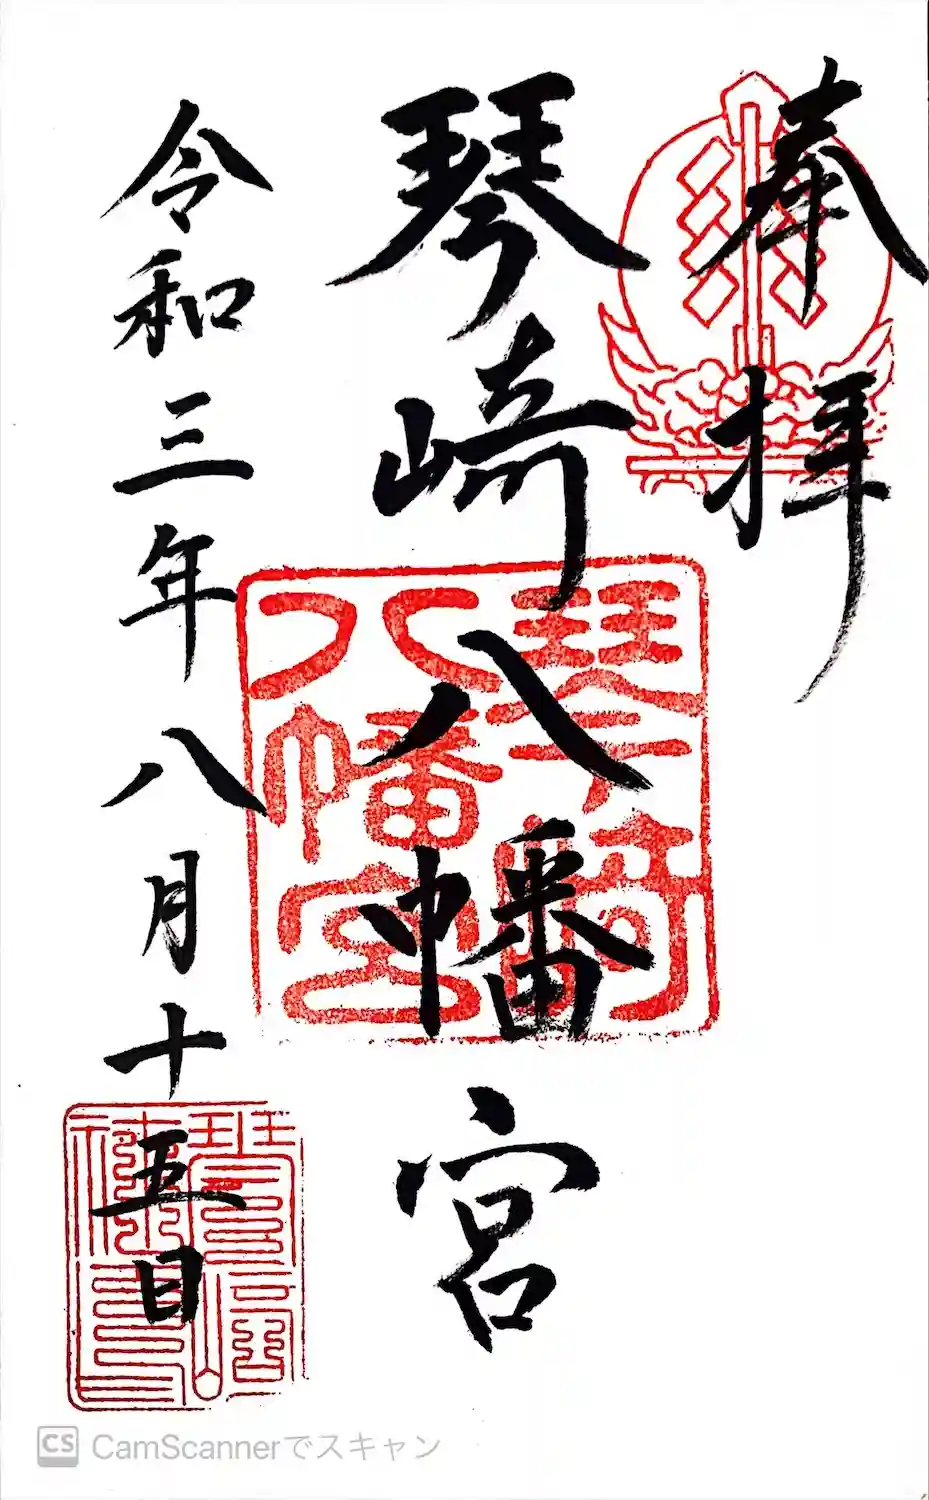 奉拝
琴崎八幡宮
令和三年八月十五日
琴崎八幡宮
CS CamScannerでスキャン